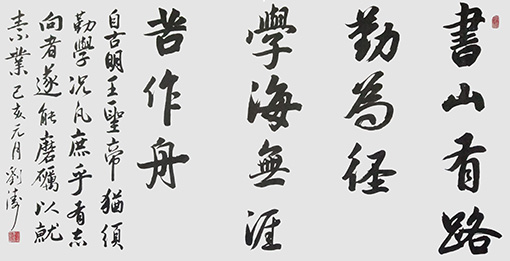 書山有路
勤為径
學海無涯
苦作舟
自古明王聖帝猶須
勤學況凡庶乎有志
向者遂能磨礪以就
素業己亥元月劉濤